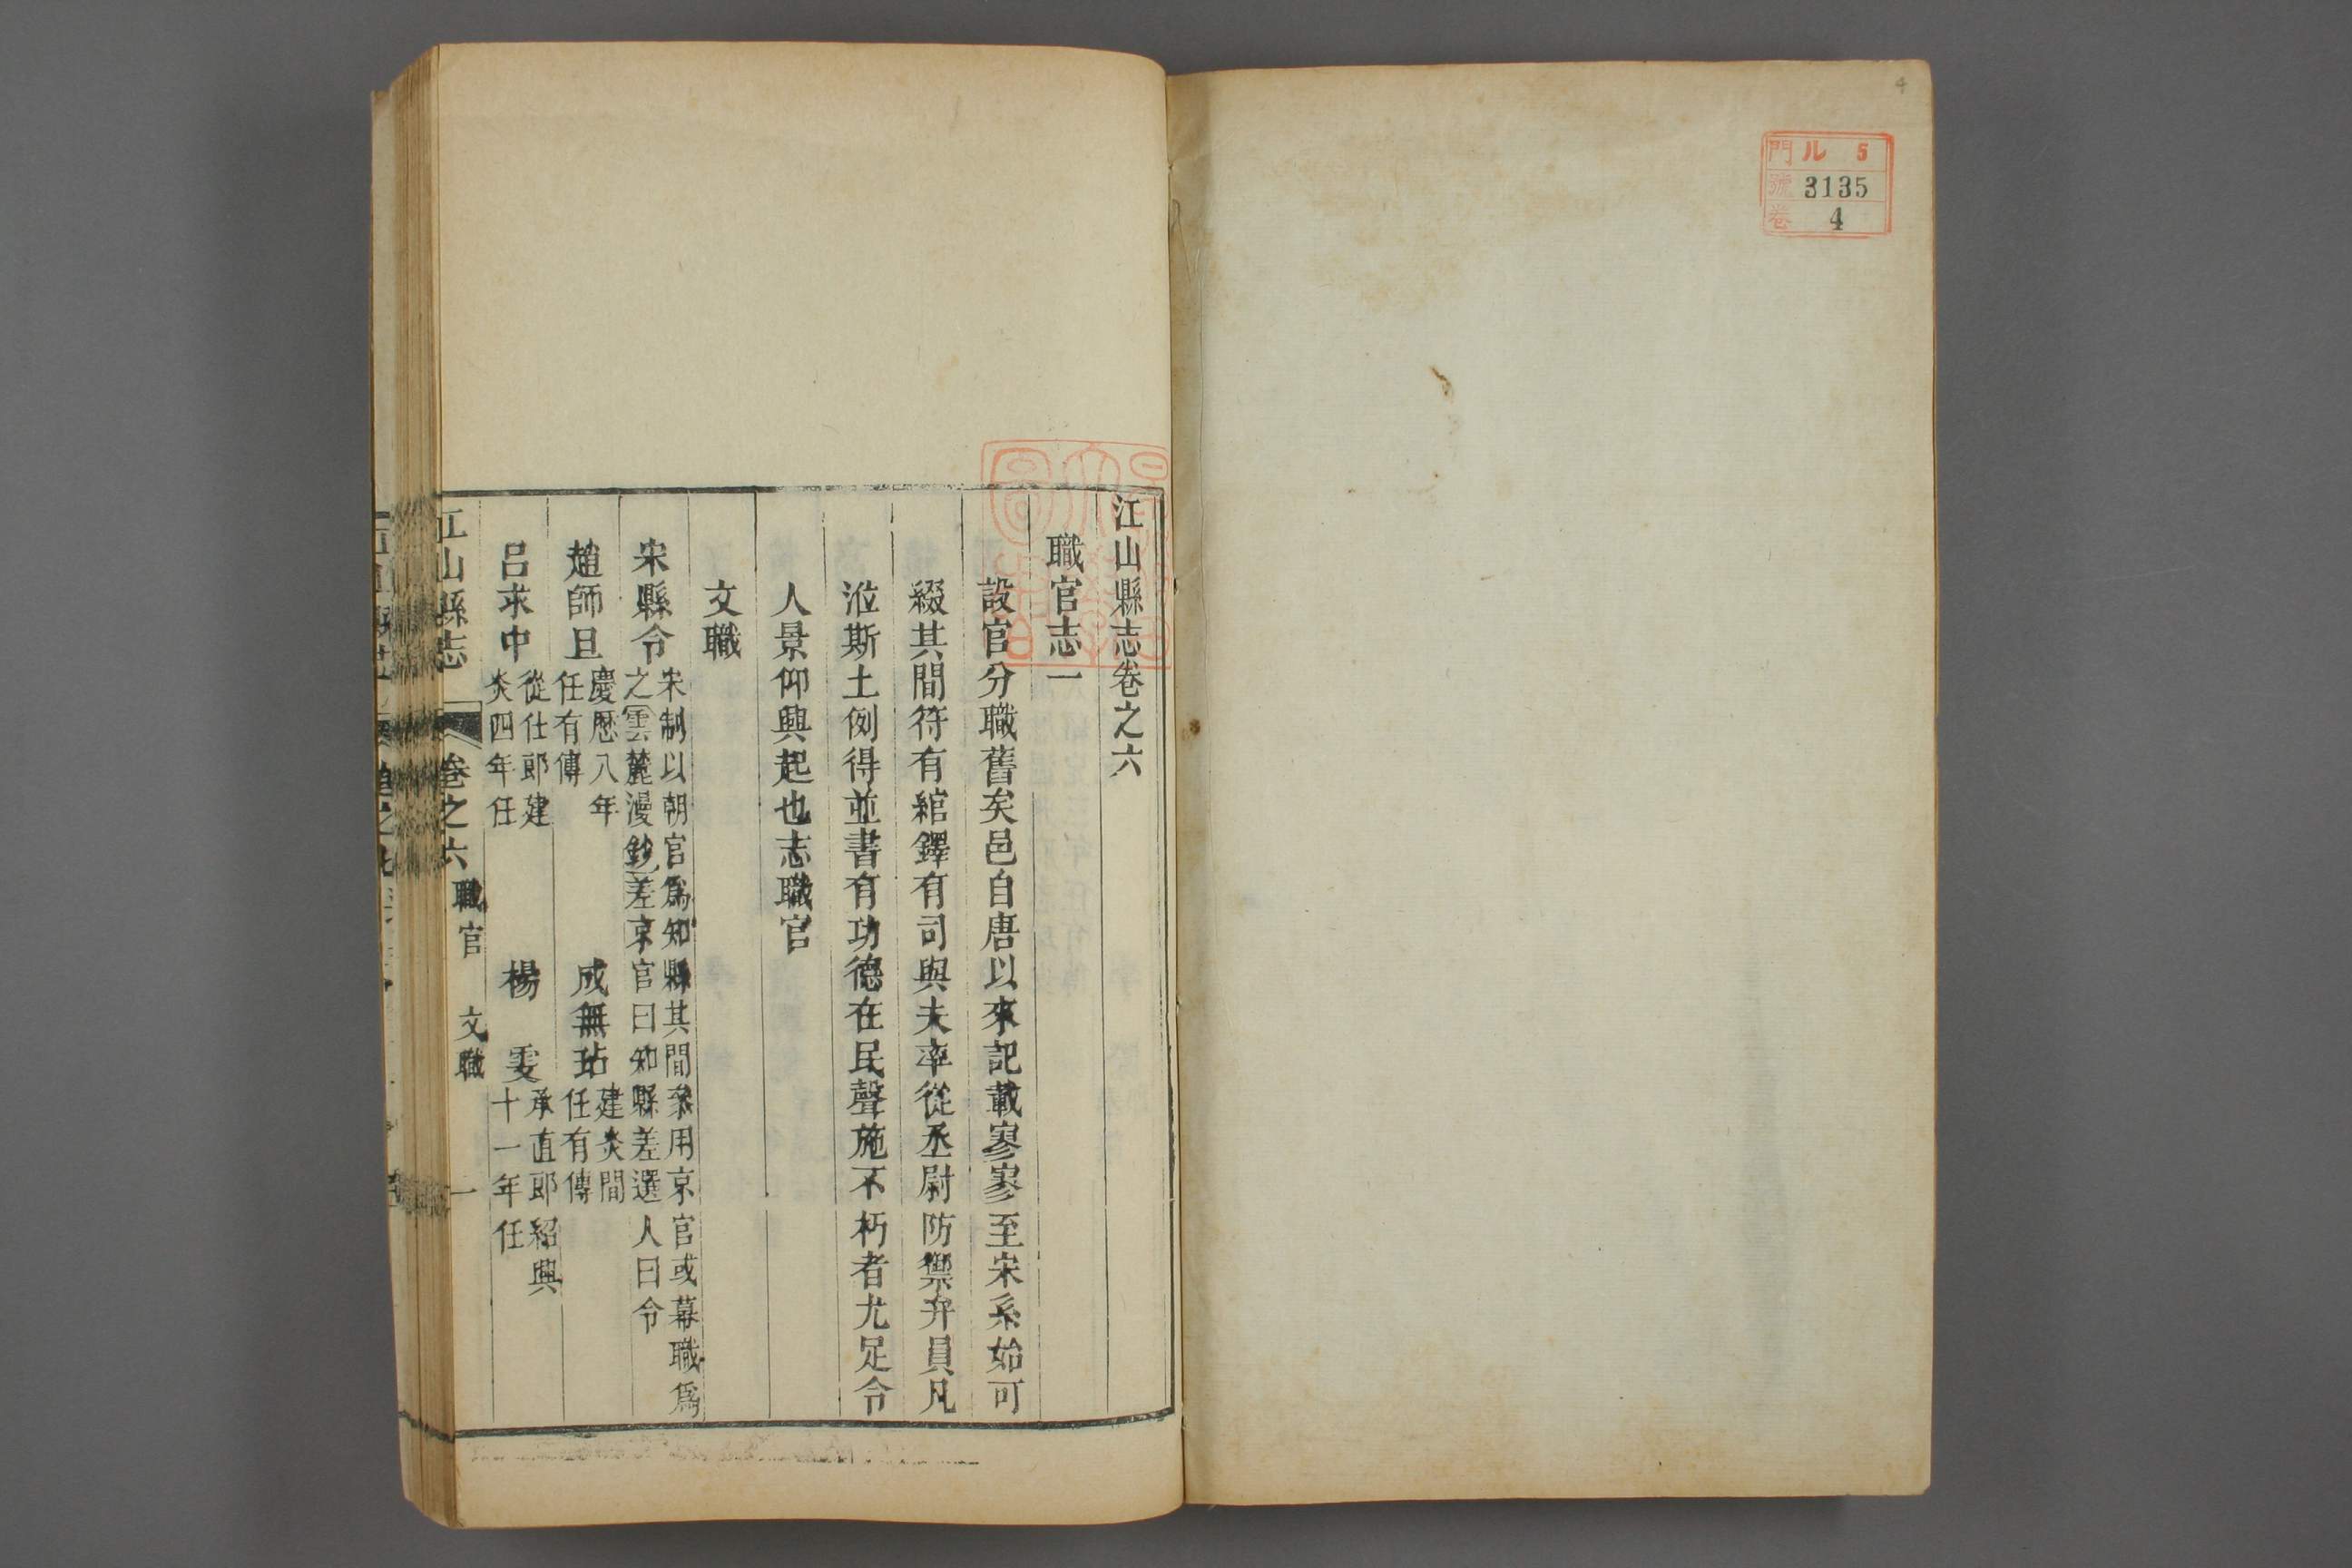 4
門 ル 5
號 3135
卷 4
江山縣志卷之六
職官志一
設官分職舊矣邑自唐以來記載寥寥至宋系始可
綴其間符有綰鐸有司與夫率從丞尉防禦弁員凡
涖斯土例得並書有功德在民聲施不朽者尤足令
人景仰興起也志職官
文職
宋縣令
宋制以朝官爲知縣其間參用京官或幕職爲
之雲麓漫鈔差京官曰知縣差選人曰令
趙師旦
慶歷八年
任有傳
成無玷
建炎間
任有傳
呂求中
從仕郎建
炎四年任
楊雯
承直郎紹興
十一年任
江山縣志 卷之六 職官 文職 一